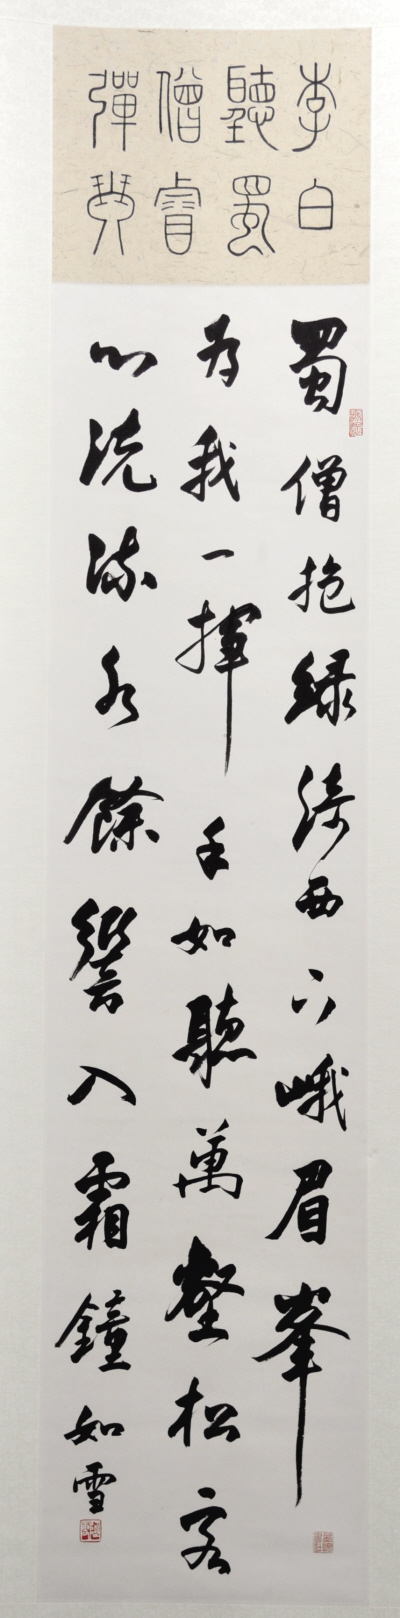 李白
聽蜀
僧睿
彈琴
蜀僧抱綠綺西下峨眉峯
為我一揮手如聽萬壑松客
心洗流水餘響入霜鐘如雪